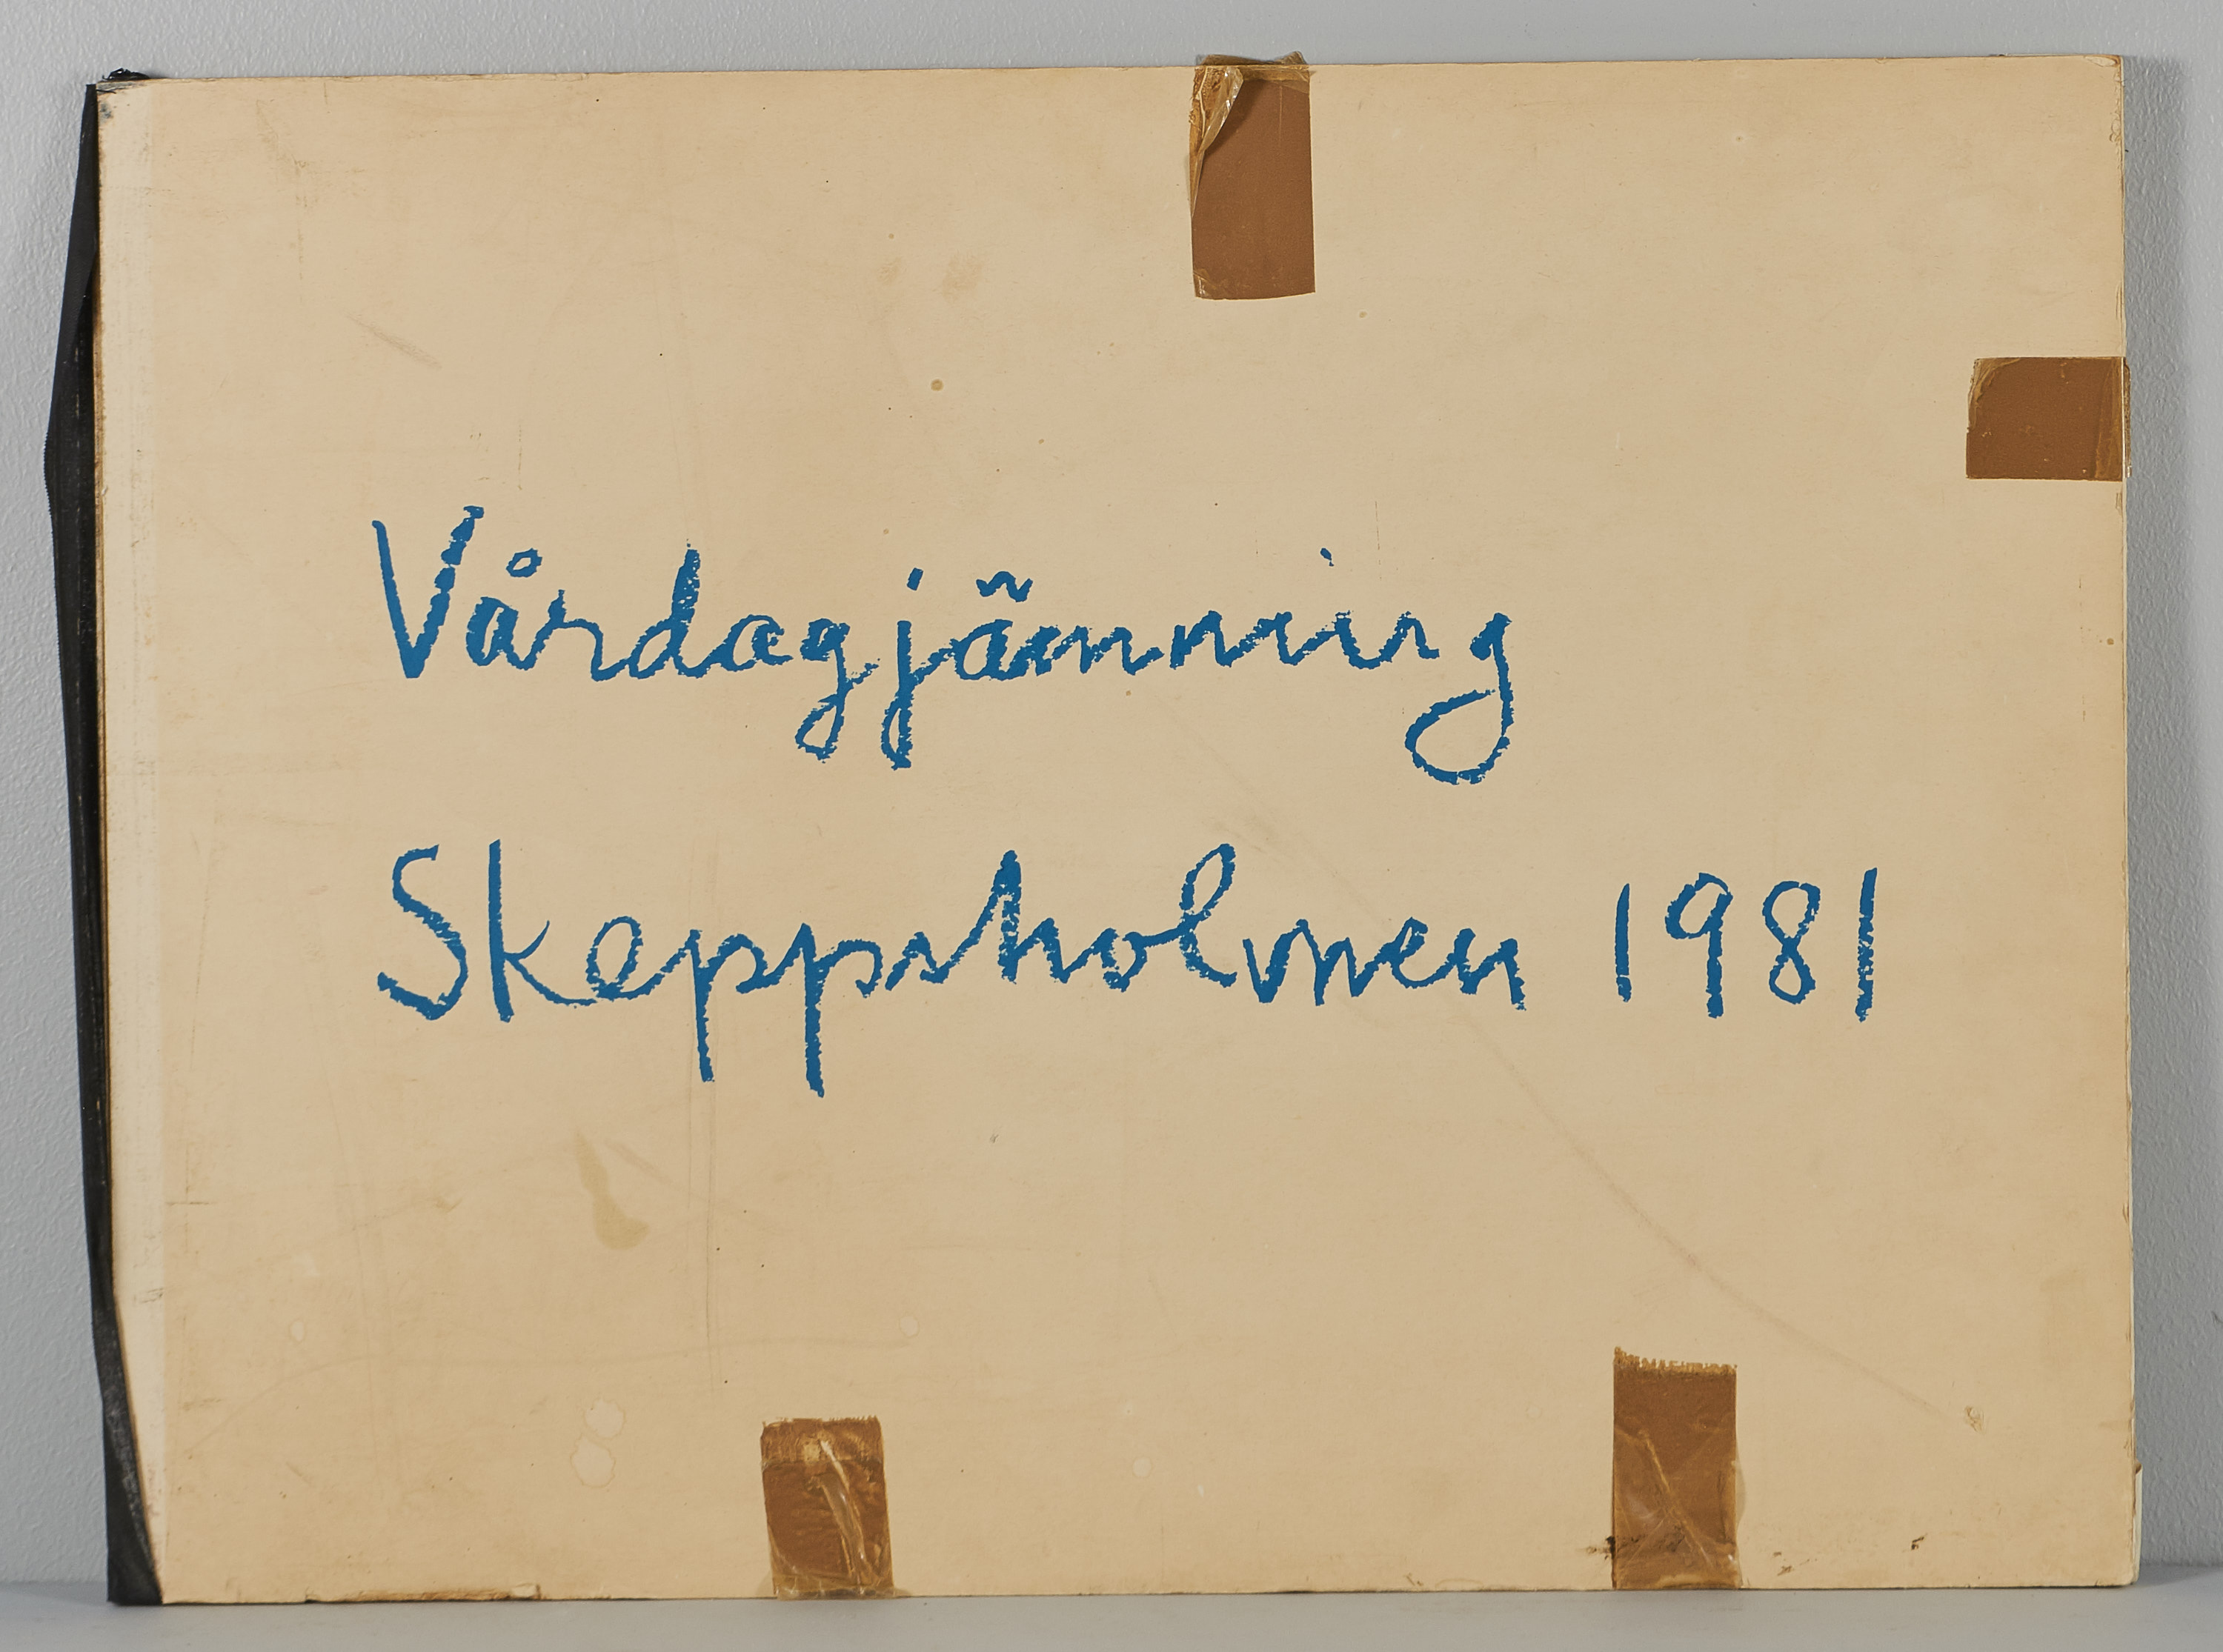 Vårdagjämning
Skeppsholmen 1981